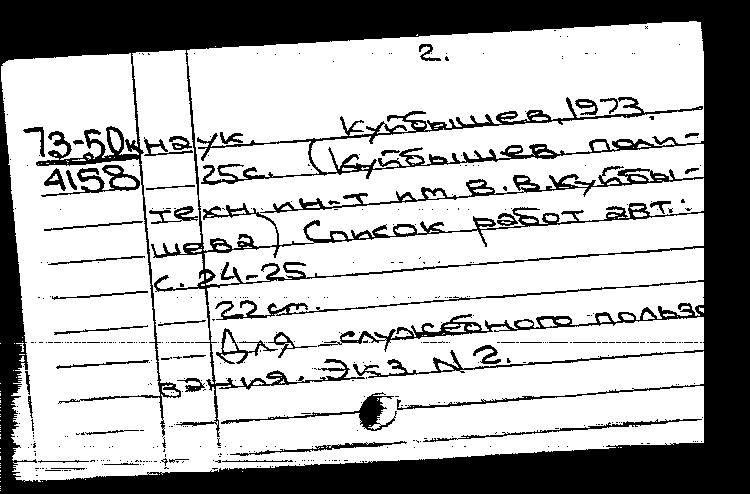 2.
73-50к наук. Куйбышев, 1973.
4158 25с. (Куйбышев. поли-
техн. ин-т им. В.В.Куйбы-
шева). Список работ авт.:
с. 24-25.
22 см.
Для служебного пользо
вания. Экз. N 2.